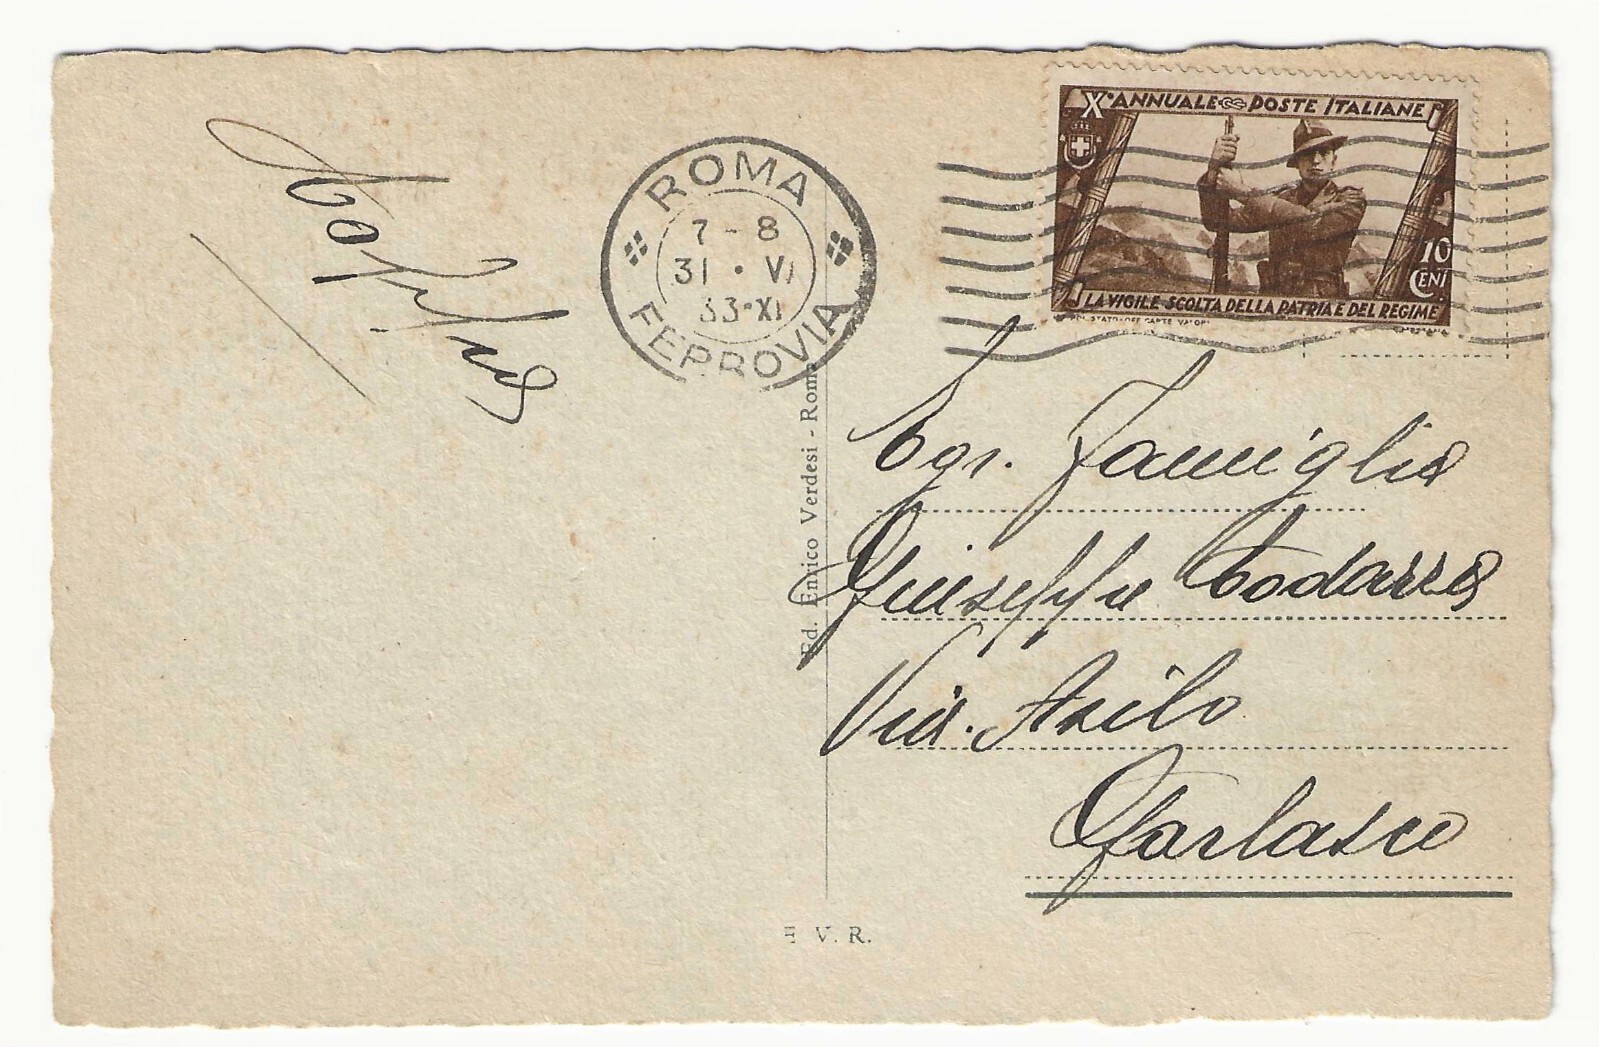 X° ANNUALE POSTE ITALIANE
10
CENT.
LA VIGILE SCOLTA DELLA PATRIA E DEL REGIME
ROMA
7 - 8
31 · VI
33·XI
FERROVIA
Ed. Enrico Verdesi - Roma
Egr. Famiglia
Giuseppe
Via. Asilo
Garlasco
E V. R.